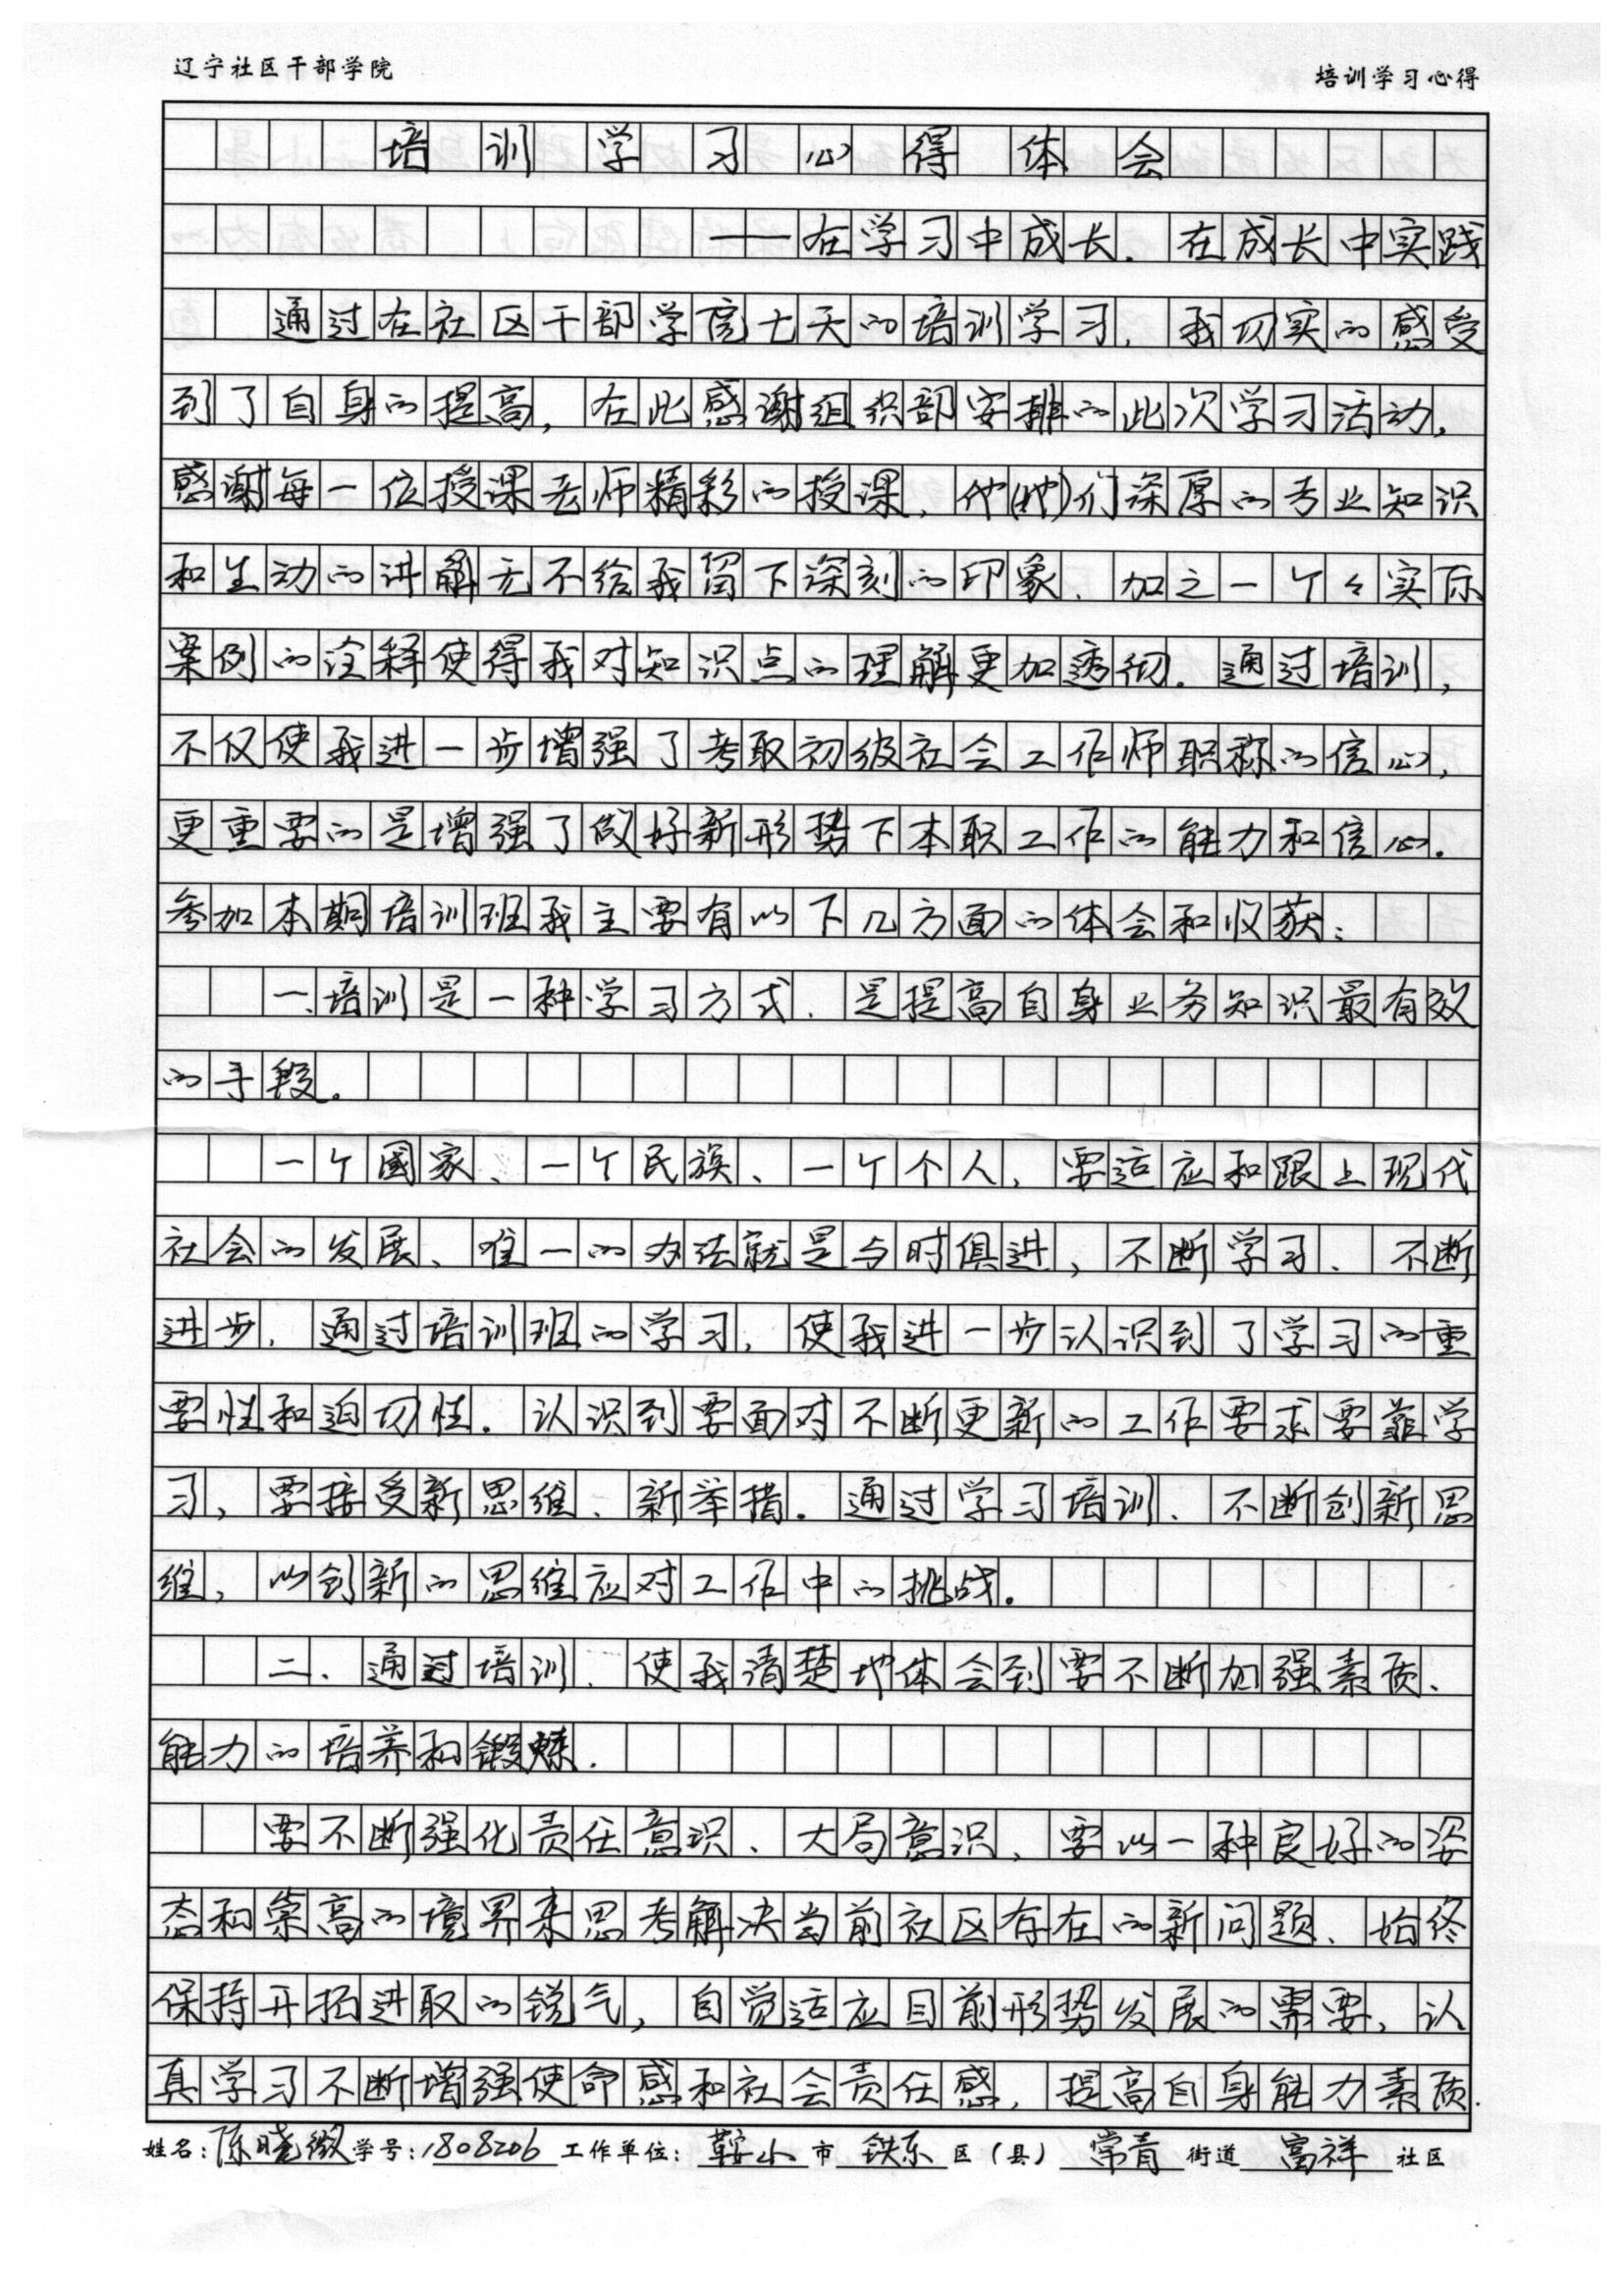 辽宁社区干部学院 培训学习心得
培训学习心得体会
——在学习中成长、在成长中实践
通过在社区干部学院七天的培训学习，我切实的感受
到了自身的提高，在此感谢组织部安排的此次学习活动，
感谢每一位授课老师精彩的授课，他(她)们深厚的专业知识
和生动的讲解无不给我留下深刻的印象、加之一个々实际
案例的诠释使得我对知识点的理解更加透彻。通过培训，
不仅使我进一步增强了考取初级社会工作师职称的信心，
更重要的是增强了做好新形势下本职工作的能力和信心。
参加本期培训班我主要有以下几方面的体会和收获：
一、培训是一种学习方式、是提高自身业务知识最有效
的手段。
一个國家、一个民族、一个个人，要适应和跟上现代
社会的发展、唯一的办法就是与时俱进，不断学习、不断
进步，通过培训班的学习，使我进一步认识到了学习的重
要性和迫切性。认识到要面对不断更新的工作要求要靠学
习，要接受新思维、新举措。通过学习培训、不断创新思
维，以创新的思维应对工作中的挑战。
二、通过培训、使我清楚地体会到要不断加强素质、
能力的培养和锻炼.
要不断强化责任意识、大局意识，要以一种良好的姿
态和崇高的境界来思考解决当前社区存在的新问题、始终
保持开拓进取的锐气，自觉适应目前形势发展的需要，认
真学习不断增强使命感和社会责任感，提高自身能力素质.
姓名：陈晓微 学号：1808206 工作单位：鞍山市 铁东区（县）常青街道 富祥社区